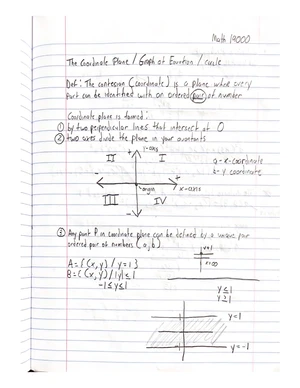 Math 19000
The Coordinate Plane / Graph of Equation / circle
Def: The cartesian (coordinate) is a plane where every
point can be identified with an ordered pair of number
Coordinate plane is formed:
① by two perpendicular lines that intersect at O
② two axes divide the plane in four quadrants
y-axis
II I
a - x-coordinate
b - y coordinate
origin x-axis
III IV
Any point P in coordinate plane can be defined by a unique pair
ordered pair of numbers (a,b)
A = {(x,y) / y=1}
B = {(x,y) / |y| ≤ 1
-1 ≤ y ≤ 1
y=1
y ≤ 1
y ≥ 1
y=1
y=-1